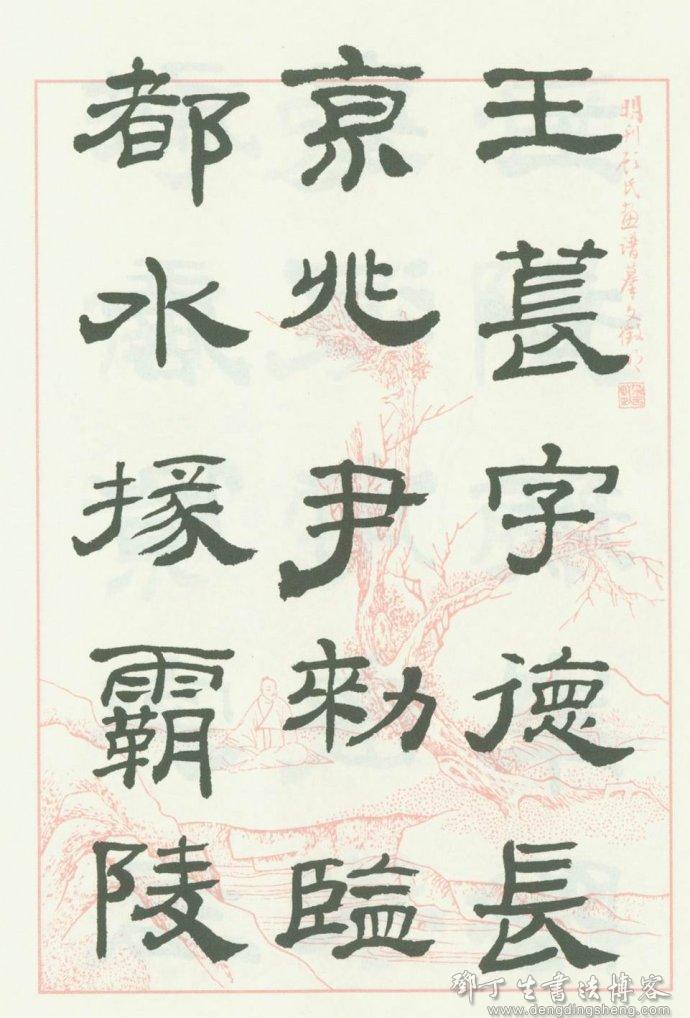 王萇字德長
亰兆尹勑監
都水掾霸陵
明刊顾氏畫谱摹文徵明
鄧丁生書法博客
www.dengdingsheng.com